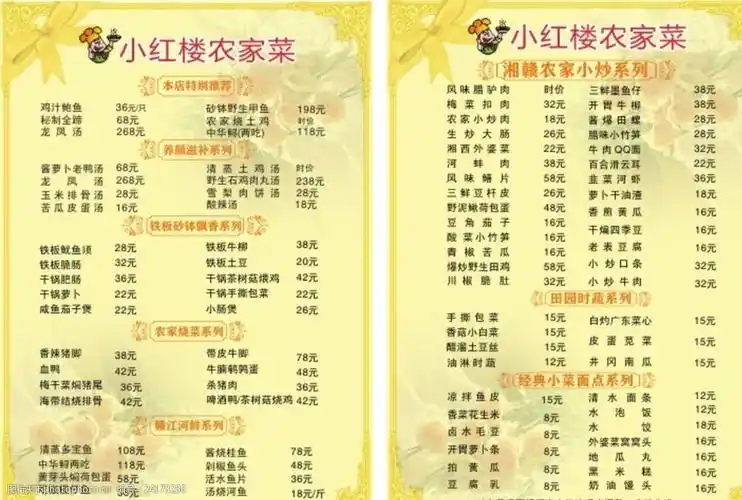 小红楼农家菜
本店特别推荐
鸡汁鲍鱼 36元/只 砂钵野生甲鱼 198元
秘制全蹄 68元 农家烧土鸡 时价
龙凤汤 268元 中华鲟(两吃) 118元
养颜滋补系列
酱萝卜老鸭汤 68元 清蒸土鸡汤 时价
龙凤汤 268元 野生石鸡肉丸汤 238元
玉米排骨汤 28元 雪梨肉饼汤 28元
苦瓜皮蛋汤 16元 酸辣汤 18元
铁板砂钵飘香系列
铁板鱿鱼须 28元 铁板牛柳 38元
铁板脆肠 32元 铁板土豆 20元
干锅肥肠 36元 干锅茶树菇煨鸡 42元
干锅萝卜 22元 干锅手撕包菜 22元
咸鱼茄子煲 22元 小肠煲 26元
农家烧菜系列
香辣猪脚 38元 带皮牛脚 78元
血鸭 42元 牛腩鹌鹑蛋 48元
梅干菜焖猪尾 36元 杀猪肉 36元
海带结烧排骨 42元 啤酒鸭/茶树菇烧鸡 42元
赣江河鲜系列
清蒸多宝鱼 108元 酱烧桂鱼 78元
中华鲟两吃 118元 剁椒鱼头 48元
黄芽头焖荷包蛋 58元 活水鱼片 36元
汤烧河鱼 18元/斤
小红楼农家菜
湘赣农家小炒系列
风味腊驴肉 时价 三鲜墨鱼仔 38元
梅菜扣肉 32元 开胃牛柳 38元
农家小炒肉 18元 酱爆田螺 28元
生炒大肠 26元 腊味小竹笋 28元
湘西外婆菜 22元 牛肉QQ面 32元
河蚌肉 38元 百合滑云耳 22元
风味鳝片 58元 韭菜河虾 36元
三鲜豆杆皮 26元 萝卜干油渣 18元
野泥鳅荷包蛋 48元 香煎黄瓜 16元
豆角茄子 16元 干煸四季豆 16元
酸菜小竹笋 16元 老表豆腐 16元
青椒苦瓜 16元 小炒口条 32元
爆炒野生田鸡 58元 小炒牛肉 32元
川椒脆肚 32元
田园时蔬系列
手撕包菜 15元 白灼广东菜心 15元
香菇小白菜 15元 皮蛋苋菜 15元
醋溜土豆丝 15元 井冈南瓜 15元
油淋时蔬 12元
经典小菜面点系列
凉拌鱼皮 15元 清水面条 12元
香菜花生米 8元 水泡饭 12元
卤水毛豆 8元 水饺 18元
开胃萝卜条 8元 外婆菜窝窝头 16元
拍黄瓜 8元 地瓜丸 16元
豆腐乳 8元 黑米糕 16元
奶油馒头 16元